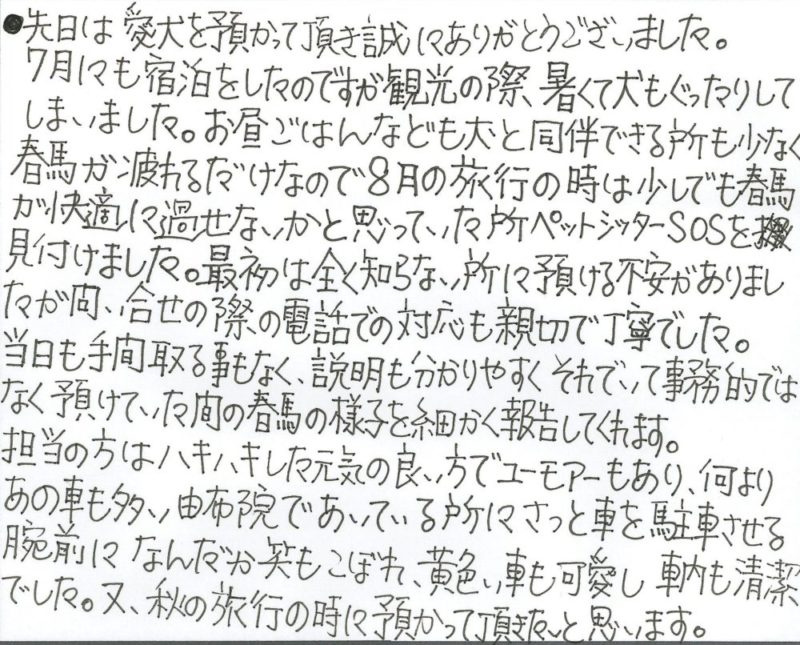 ●先日は愛犬を預かって頂き誠にありがとうございました。
7月にも宿泊をしたのですが観光の際、暑くて犬もぐったりして
しまいました。お昼ごはんなども犬と同伴できる所も少なく
春馬が疲れるだけなので8月の旅行の時は少しでも春馬
が快適に過せないかと思っていた所ペットシッターSOSを
見付けました。最初は全く知らない所に預ける不安がありまし
たが問い合せの際の電話での対応も親切で丁寧でした。
当日も手間取る事もなく、説明も分かりやすくそれでいて事務的では
なく預けていた間の春馬の様子を細かく報告してくれます。
担当の方はハキハキした元気の良い方でユーモアーもあり、何より
あの車も多い由布院であいている所にさっと車を駐車させる
腕前になんだか笑もこぼれ、黄色い車も可愛し車内も清潔
でした。又、秋の旅行の時に預かって頂きたいと思います。